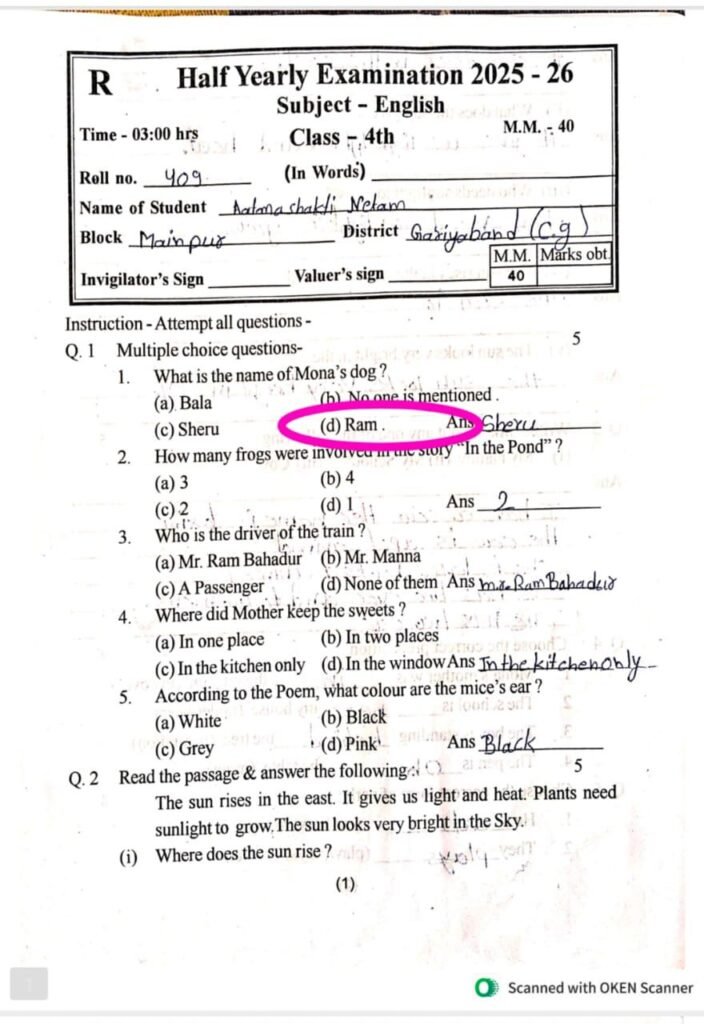 R Half Yearly Examination 2025 - 26
Subject - English
Time - 03:00 hrs Class - 4th M.M. - 40
Roll no. 409 (In Words)
Name of Student Aatmashakti Netam
Block Mainpur District Gariyaband (C.g)
M.M. Marks obt.
Invigilator's Sign Valuer's sign 40
Instruction - Attempt all questions -
Q. 1 Multiple choice questions- 5
1. What is the name of Mona's dog ?
(a) Bala (b) No one is mentioned .
(c) Sheru (d) Ram . Ans Sheru
2. How many frogs were involved in the story "In the Pond" ?
(a) 3 (b) 4
(c) 2 (d) 1 Ans 2
3. Who is the driver of the train ?
(a) Mr. Ram Bahadur (b) Mr. Manna
(c) A Passenger (d) None of them Ans mr. Ram Bahadur
4. Where did Mother keep the sweets ?
(a) In one place (b) In two places
(c) In the kitchen only (d) In the window Ans In the kitchen only
5. According to the Poem, what colour are the mice's ear ?
(a) White (b) Black
(c) Grey (d) Pink Ans Black
Q. 2 Read the passage & answer the following: 5
The sun rises in the east. It gives us light and heat. Plants need
sunlight to grow. The sun looks very bright in the Sky.
(i) Where does the sun rise ?
(1)
1
Scanned with OKEN Scanner